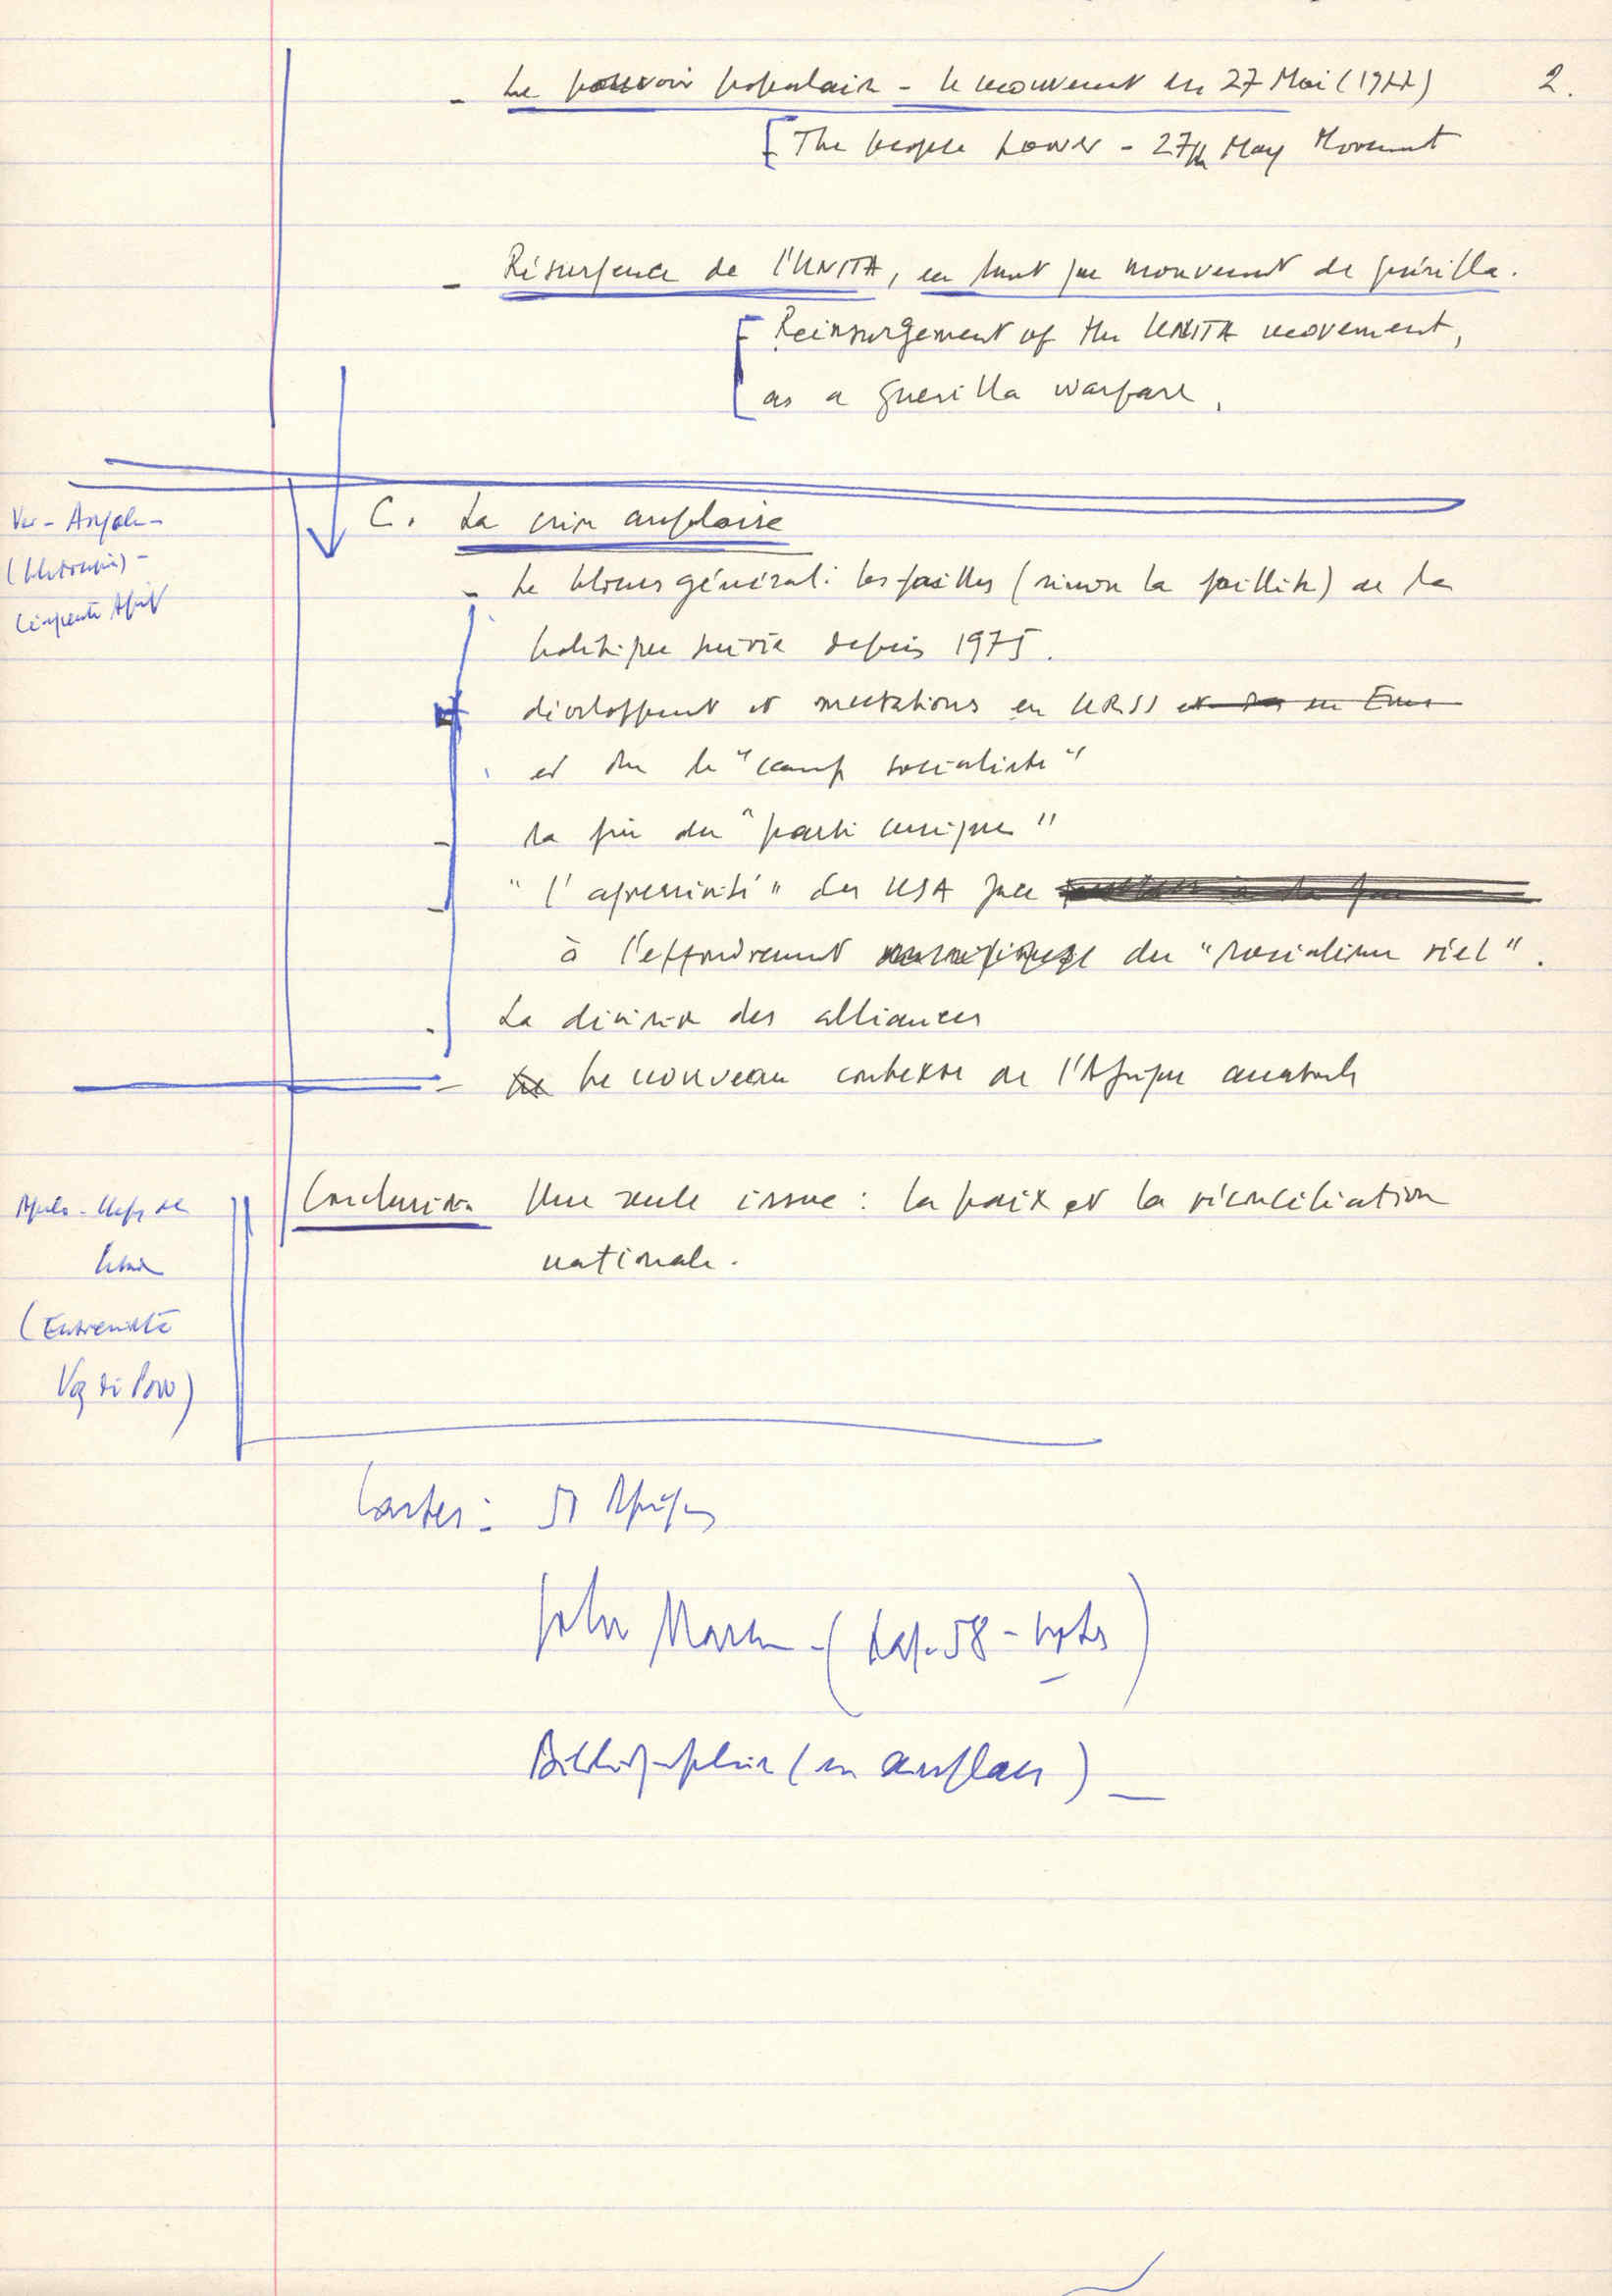 2.
- Le pouvoir populaire - le mouvement du 27 Mai (1977)
[The People Power - 27th May Movement
- Résurgence de l'UNITA, en tant que mouvement de guérilla.
[Reinsurgement of the UNITA movement,
as a guerilla warfare.
C. La crise angolaise
- Le blocus général : les failles (sinon la faillite) de la
politique suivie depuis 1975.
développement et mutations en URSS
et dans le "camp socialiste"
- la fin du "parti unique"
- "l'agressivité" des USA face
à l'effondrement du "socialisme réel".
- La division des alliances
- Le nouveau contexte de l'Afrique australe
Conclusion Une seule issue : la paix et la réconciliation
nationale.
(Entrevista
Voz di Povo)
Cartes : Afrique
John Marcum - ( 58 - )
Bibliographie (en anglais) -